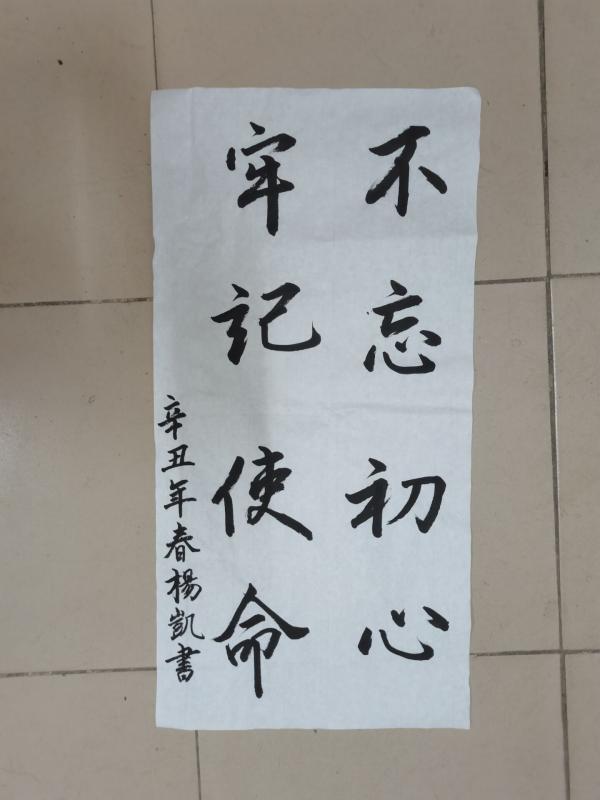 不忘初心
牢记使命
辛丑年春楊凱書